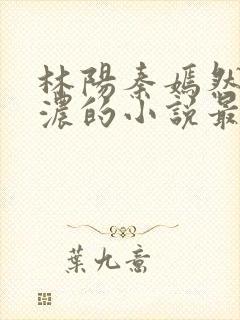 林陽秦嫣然
濃的小說最
葉九喬